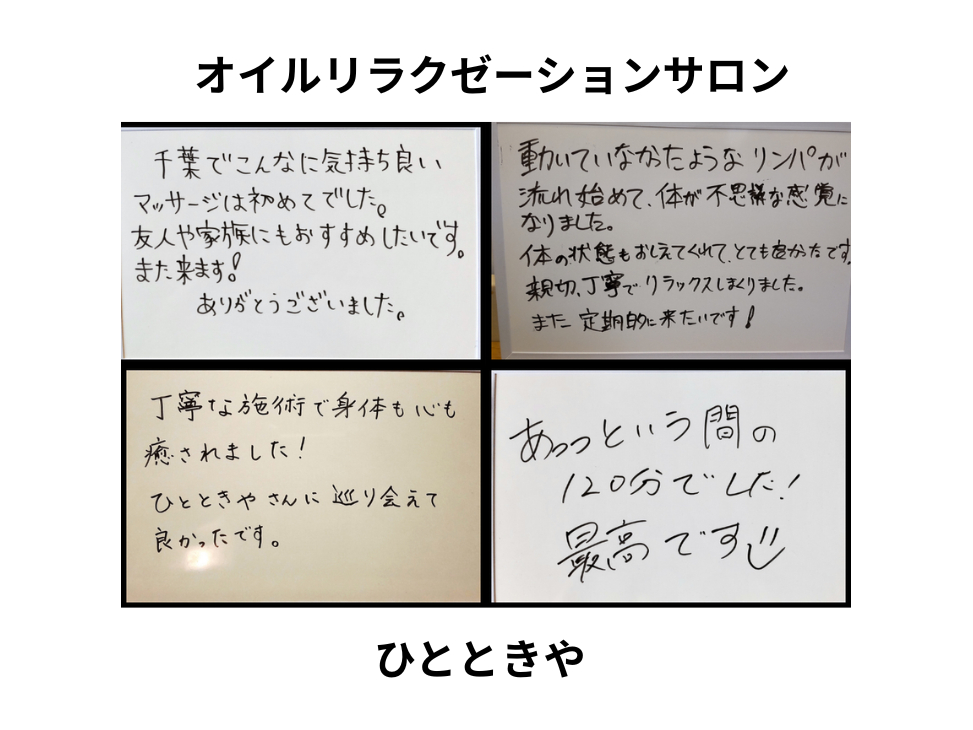 オイルリラクゼーションサロン
千葉でこんなに気持ち良い
マッサージは初めてでした。
友人や家族にもおすすめしたいです。
また来ます!
ありがとうございました。
動いていなかたようなリンパが
流れ始めて、体が不思議な感覚に
なりました。
体の状態もおしえてくれて、とても良かたです
親切、丁寧でリラックスしまくりました。
また定期的に来たいです!
丁寧な施術で身体も心も
癒されました!
ひとときやさんに巡り会えて
良かったです。
あっっという間の
120分でした!
最高です
ひとときや